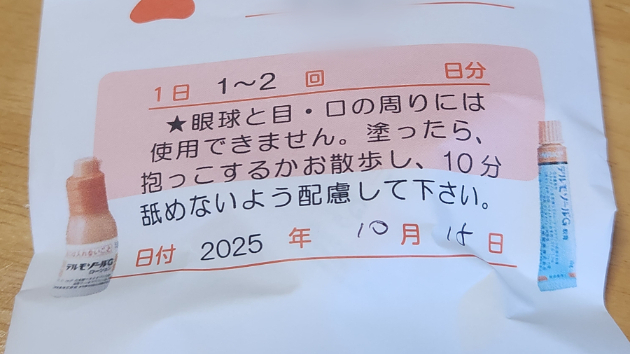 1日 1～2 回 日分
★眼球と目・口の周りには
使用できません。塗ったら、
抱っこするかお散歩し、10分
舐めないよう配慮して下さい。
日付 2025 年 10 月 18 日
テルモゾールG
ローション
テルモゾールG